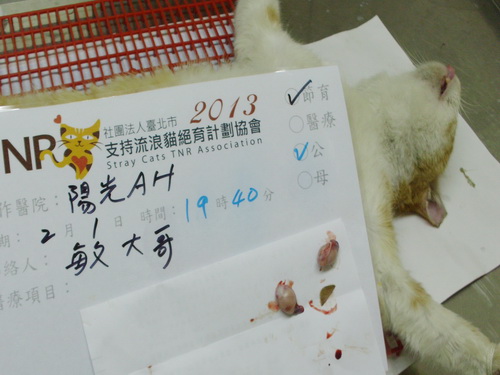 2013
社團法人臺北市
TNR 支持流浪貓絕育計劃協會
Stray Cats TNR Association
節育
醫療
公
母
作醫院：陽光AH
期：2月1日 時間：19時40分
絡人：敏大哥
醫療項目：